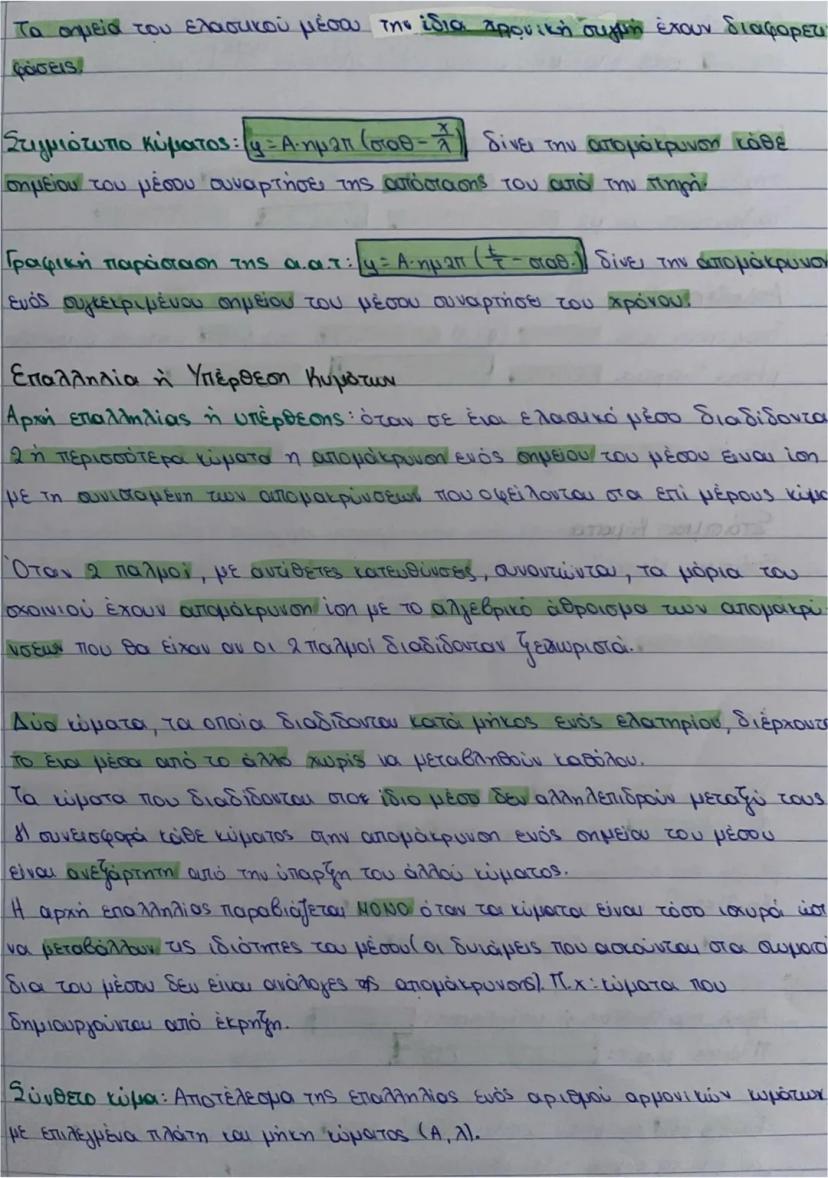 Τα σημεία του ελαστικού μέσου την ίδια χρονική στιγμή έχουν διαφορετι
φάσεις.
Στιγμιότυπο κύματος: y = A·ημ2π (σταθ - x/λ) δίνει την απομάκρυνση κάθε
σημείου του μέσου συναρτήσει της απόστασης του από την πηγή.
Γραφική παράσταση της α.α.τ: y = A·ημ2π (t/T - σταθ.) δίνει την απομάκρυνση
ενός συγκεκριμένου σημείου του μέσου συναρτήσει του χρόνου.
Επαλληλία ή Υπέρθεση Κυμάτων
Αρχή επαλληλίας ή υπέρθεσης: όταν σε ένα ελασικό μέσο διαδίδοντα
2 ή περισσότερα κύματα η απομάκρυνση ενός σημείου του μέσου είναι ίση
με τη συνισταμένη των απομακρύνσεων που οφείλονται στα επί μέρους κύμα
Όταν 2 παλμοί, με αντίθετες κατευθύνσεις, συναντώνται, τα μόρια του
σχοινιού έχουν απομάκρυνση ίση με το αλγεβρικό άθροισμα των απομακρύ-
νσεων που θα είχαν αν οι 2 παλμοί διαδίδονταν ξεχωριστά.
Δύο κύματα, τα οποία διαδίδονται κατά μήκος ενός ελατηρίου, διέρχοντα
το ένα μέσα από το άλλο χωρίς να μεταβληθούν καθόλου.
Τα κύματα που διαδίδονται στο ίδιο μέσο δεν αλληλεπιδρούν μεταξύ τους
Η συνεισφορά κάθε κύματος στην απομάκρυνση ενός σημείου του μέσου
είναι ανεξάρτητη από την ύπαρξη του άλλού κύματος.
Η αρχή επαλληλίας παραβιάζεται ΜΟΝΟ όταν τα κύματα είναι τόσο ισχυρά ώστ
να μεταβάλλουν τις ιδιότητες του μέσου (οι δυνάμεις που ασκούνται στα σωματί
δια του μέσου δεν είναι ανάλογες της απομάκρυνσης). Π.χ: κύματα που
δημιουργούνται από έκρηξη.
Σύνθετο κύμα: Αποτέλεσμα της επαλληλίας ενός αριθμού αρμονικών κυμάτων
με επιλεγμένα πλάτη και μήκη κύματος (Α, λ).